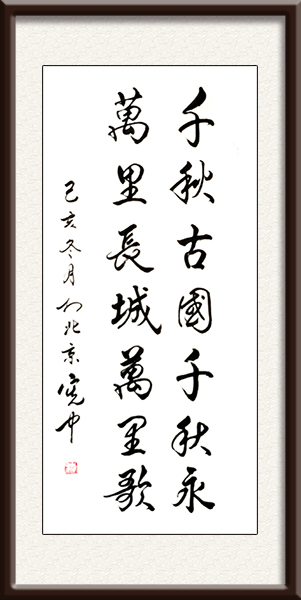 千秋古國千秋永
萬里長城萬里歌
己亥冬月於北京寬中